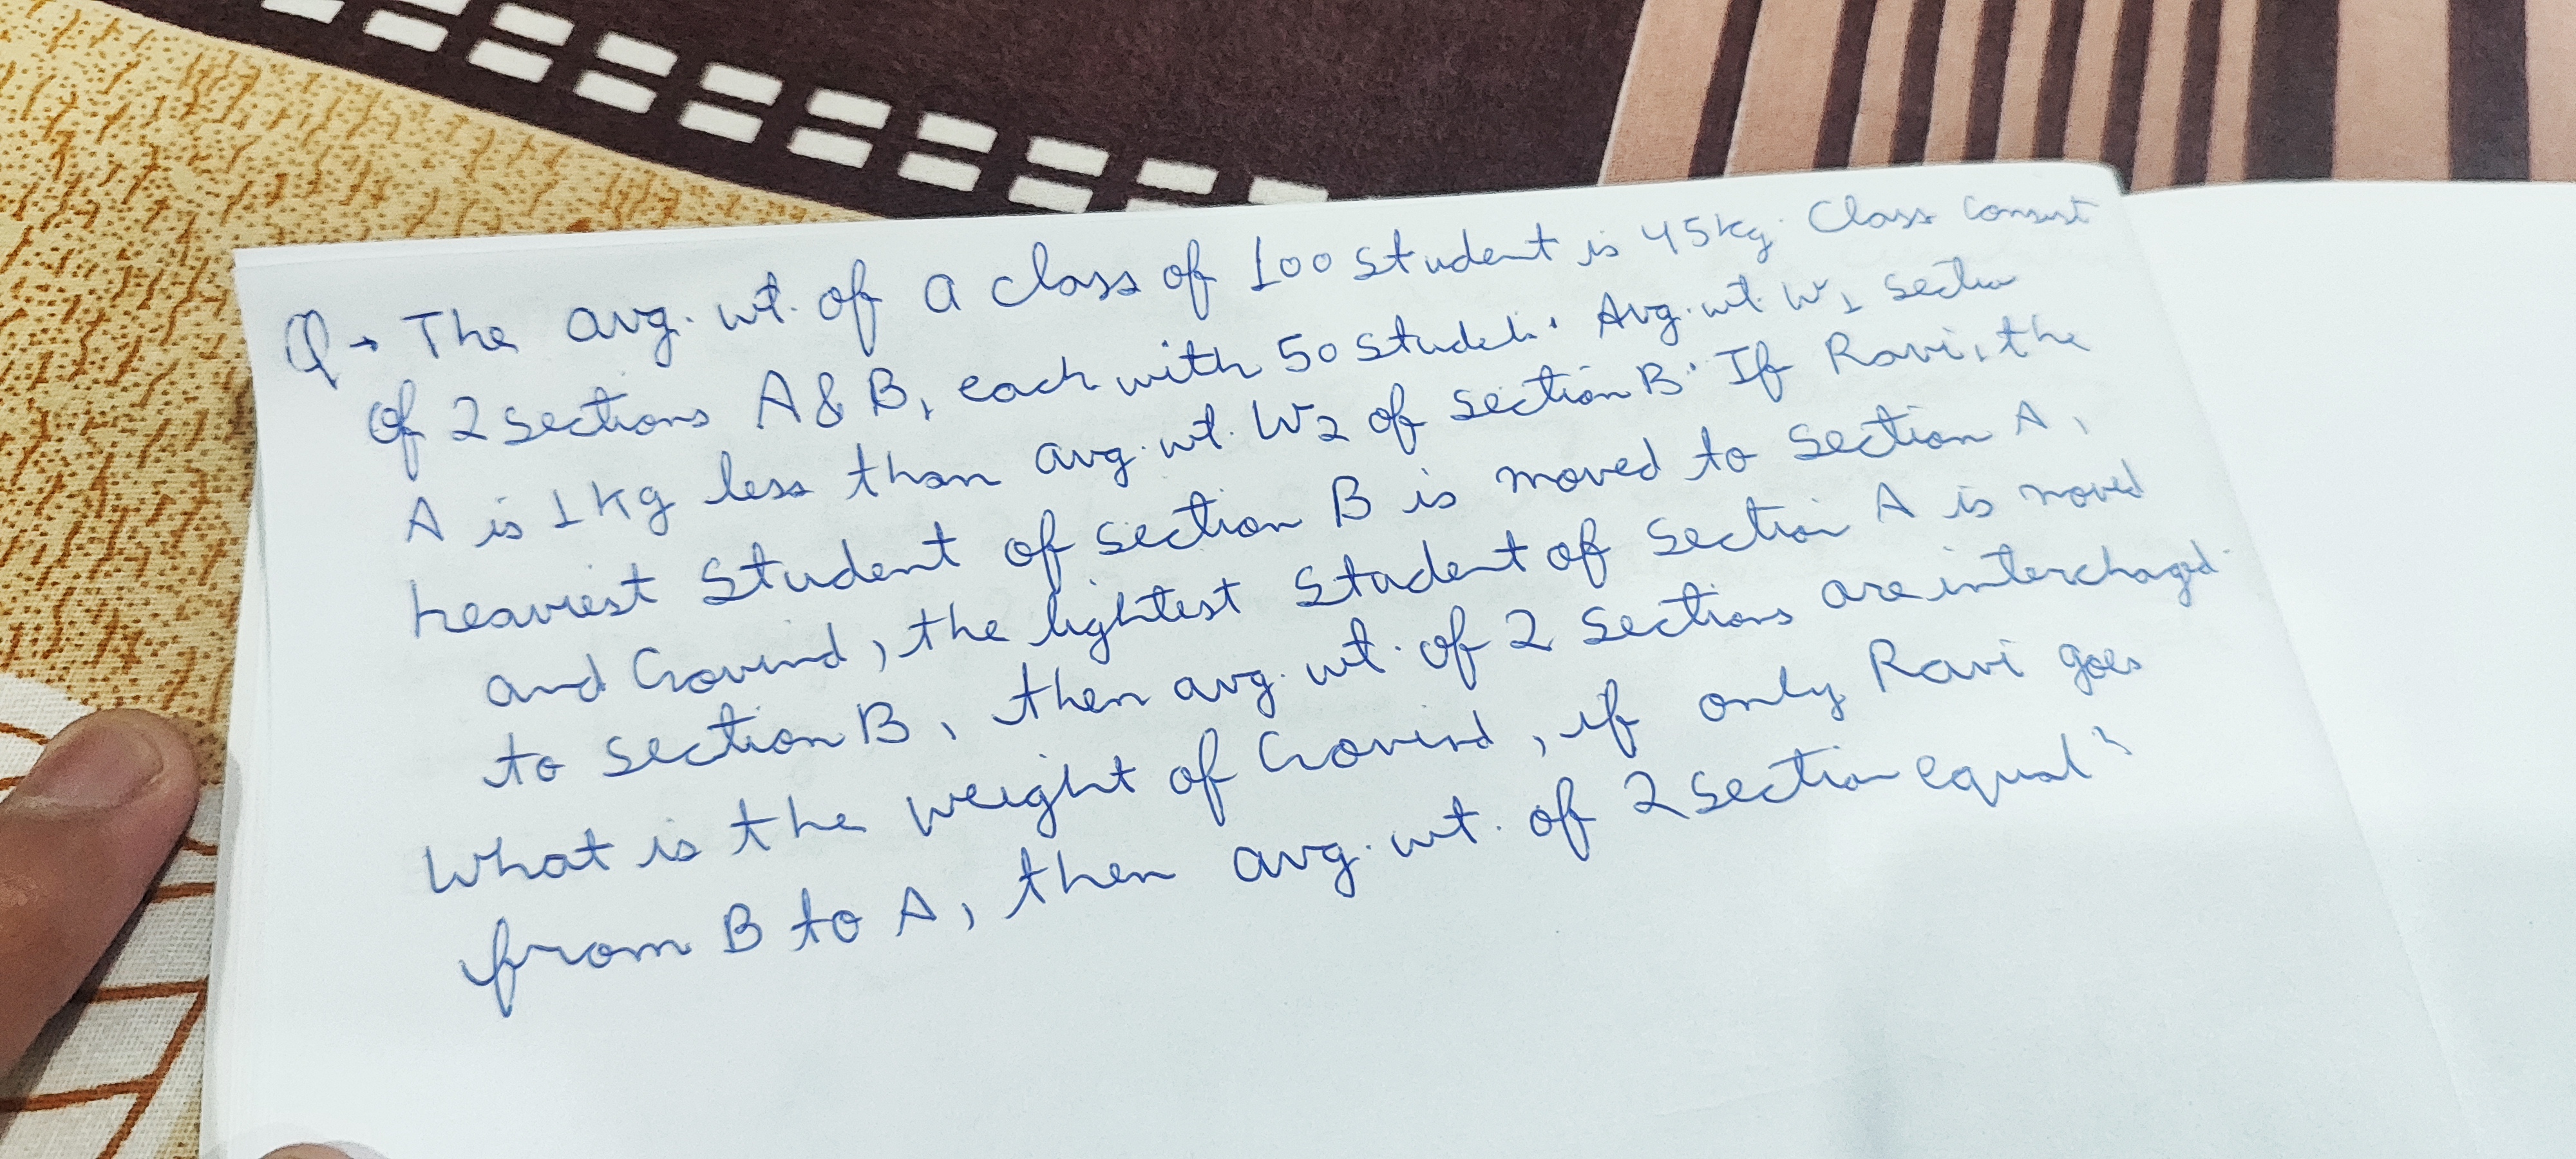 Q → The avg. wt. of a class of 100 student is 45kg. Class consist
of 2 sections A & B, each with 50 students. Avg. wt. W1 section
A is 1kg less than avg. wt. W2 of section B. If Ravi, the
heaviest student of section B is moved to section A,
and Govind, the lightest student of section A is moved
to section B, then avg. wt. of 2 sections are interchanged.
What is the weight of Govind, if only Ravi goes
from B to A, then avg. wt. of 2 section equal?